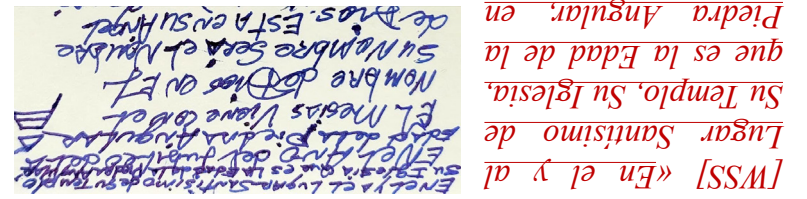 [WSS] «En el y al
Lugar Santísimo de
Su Templo, Su Iglesia,
que es la Edad de la
Piedra Angular, en
EN EL Y AL LUGAR SANTISIMO de SU TEMPLO
SU IGLESIA QUE ES LA EDAD de LA PIEDRA ANGULAR
EN EL AÑO del
EDAD de la PIEDRA ANGULAR
EL MESIAS VIENE CON el
NOMBRE de DIOS en EL
SU NOMBRE SERA el NOMBRE
de DIOS. ESTA en SU ANGEL